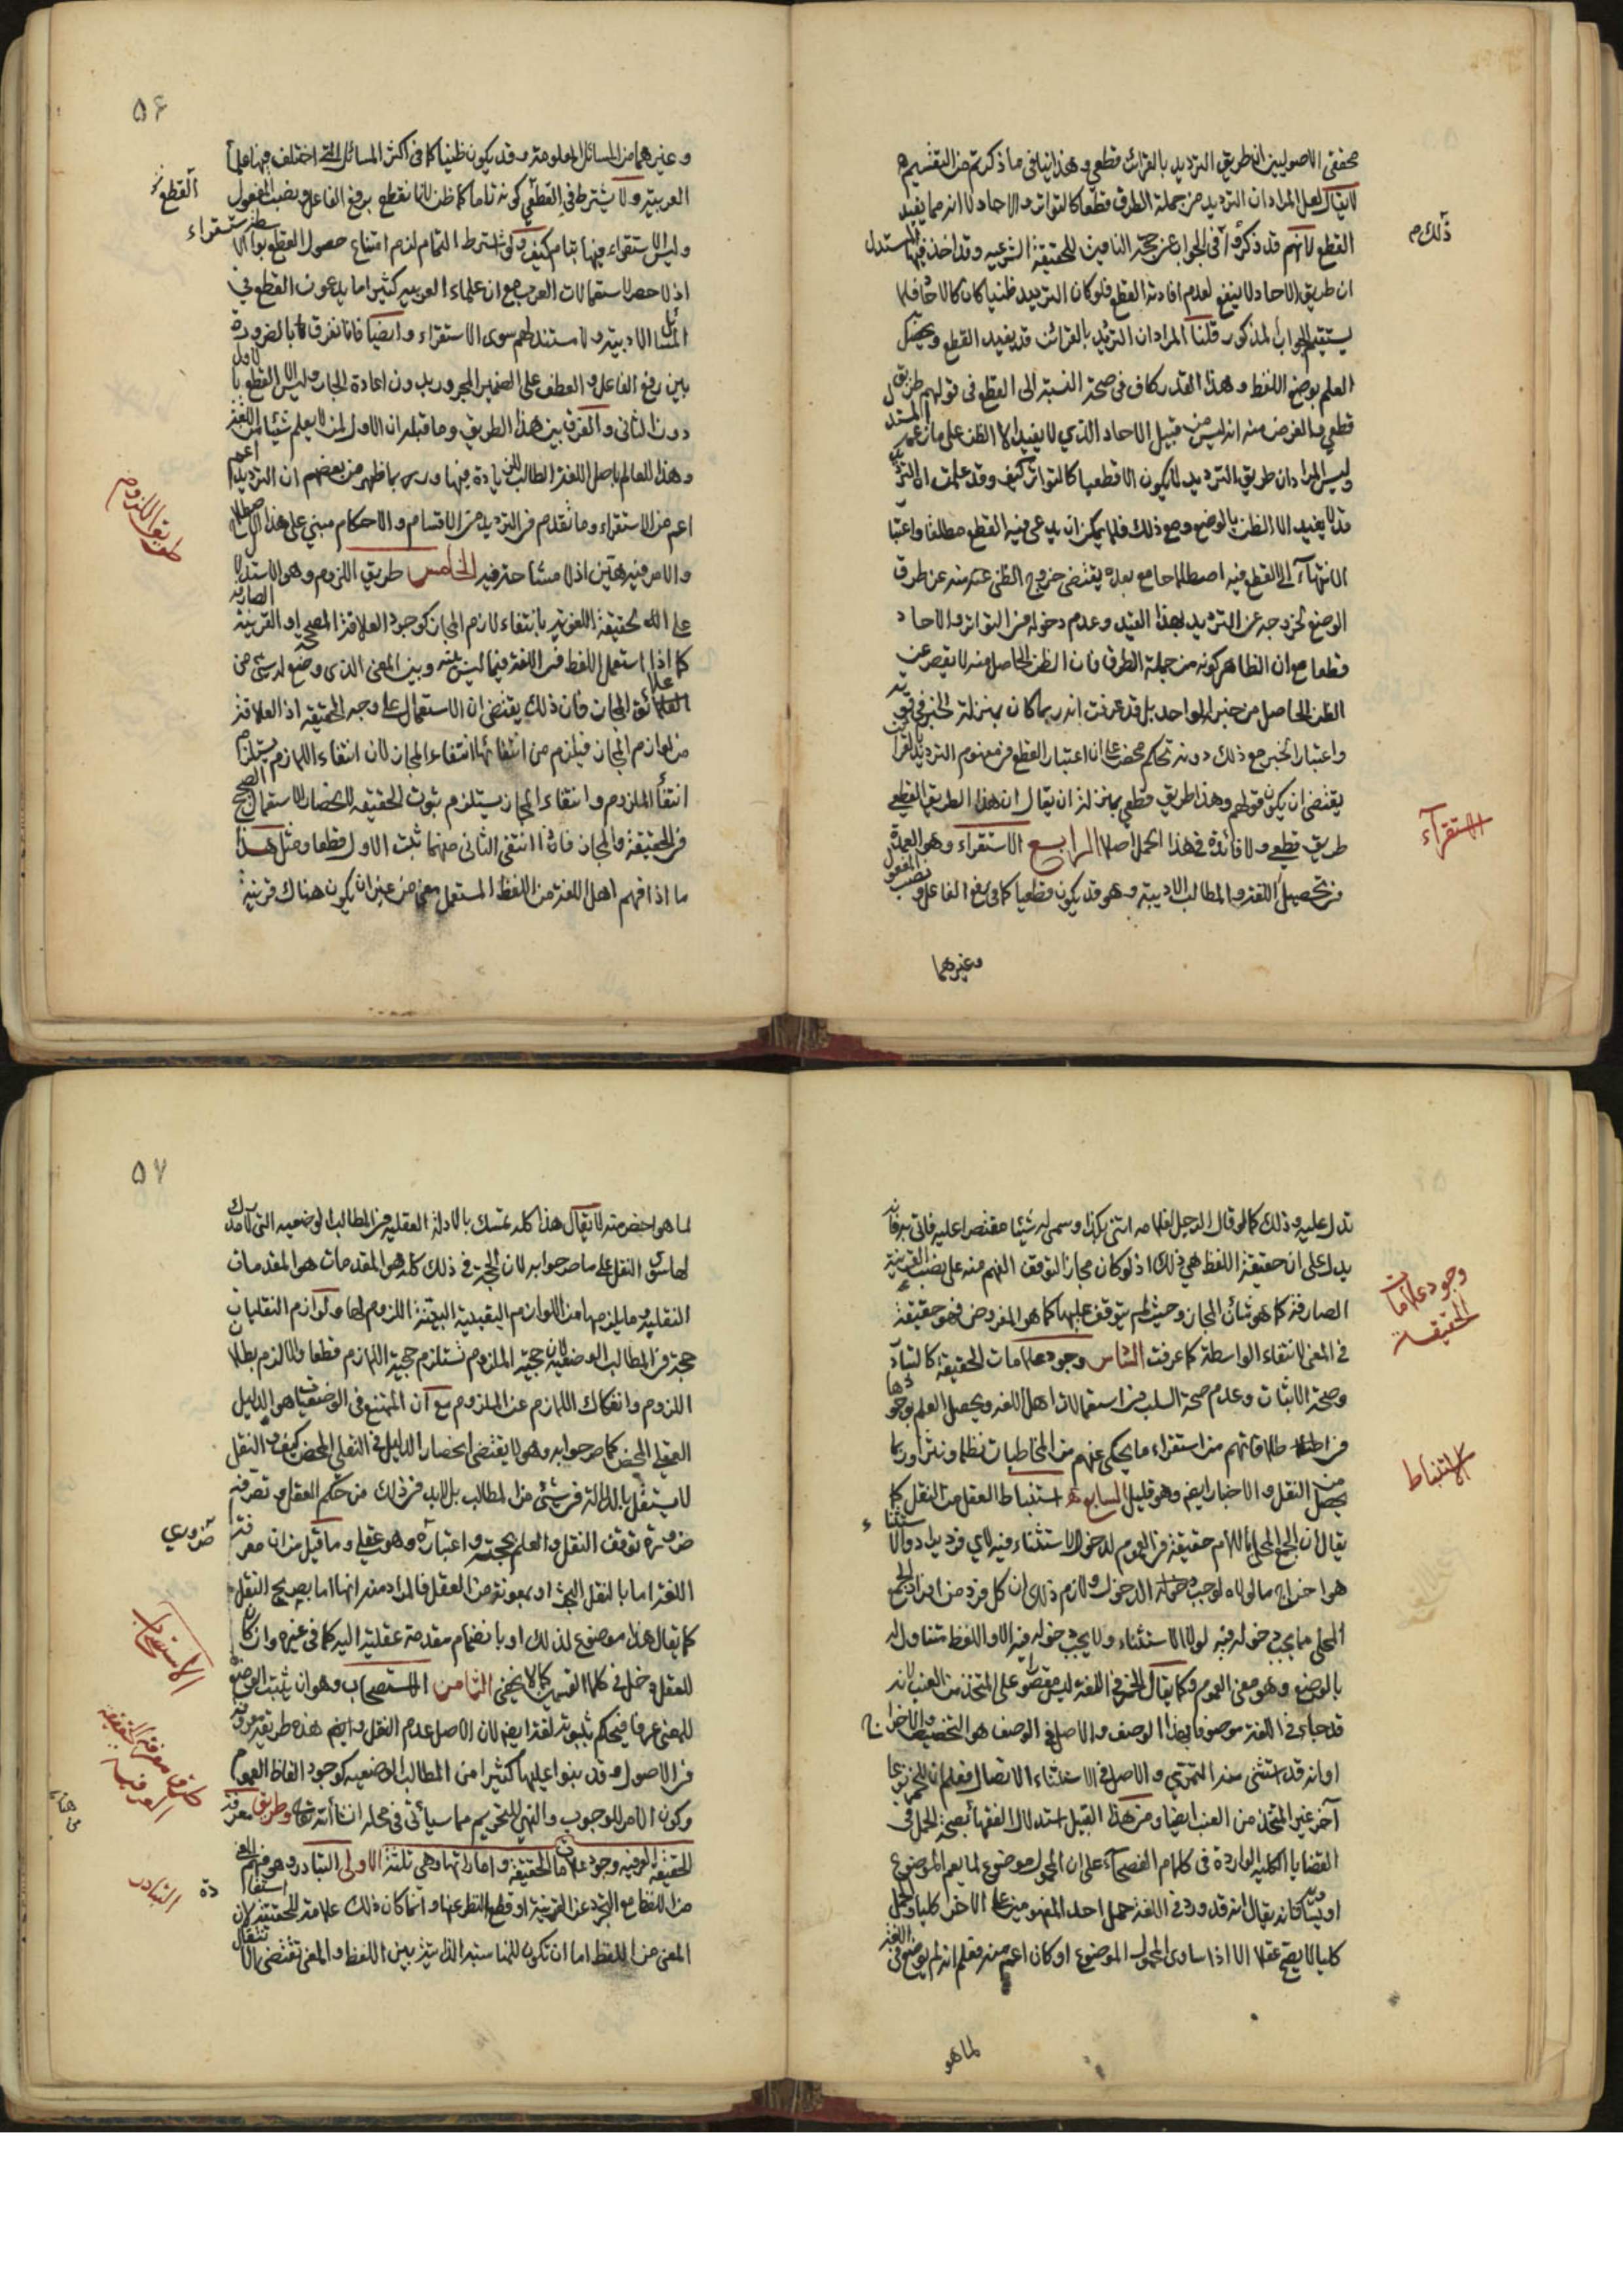 محققى الاصوليين ان طريق الترديد بالقرائن قطعي وهذا ينافى ما ذكرتم من التقسيم
لا يقال لعل المراد ان الترديد من جملة الطرق قطعا كالتواتر والاحاد لا انه مما يفيد
القطع لانهم قد ذكروا فى الجواب عن حجة النافين للحقيقة الشرعيه وقد اخذ فيها المستدل
ذلك م
ان طريق الاحاد لا ينفع لعدم افادته القطع فلو كان الترديد ظنيا كان كالاحاد فلا
يستقيم الجواب المذكور قلنا المراد ان الترديد بالقرائن قد يفيد القطع ويحصل
العلم بوضع اللفظ وهذا القدر كاف فى صحة النسبة الى القطع فى قولهم طريق
قطعي والغرض منه انه ليس من قبيل الاحاد الذي لا يفيد الا الظن على ما زعمه المستدل
وليس المراد ان طريق الترديد لا يكون الا قطعيا كالتواتر كيف وقد علمت ان الترديد
قد لا يفيد الا الظن بالوضع ومع ذلك فلا يمكن ان يدعى فيه القطع مطلقا واعتبار
الانتهاء الى القطع فيه اصطلاحا مع بعده يقتضى خروج الظنى عنه من طرق
الوضع لخروجه عن الترديد بهذا القيد وعدم دخوله فى التواتر والاحاد
قطعا مع ان الظاهر كونه من جملة الطرق فان الظن الحاصل منه لا يقصر عن
الظن الحاصل من خبر الواحد بل قد عرفت انه ربما كان بمنزلة الخبر فى قوته
واعتبار الخبر مع ذلك دونه تحكم محض على ان اعتبار القطع فى مفهوم الترديد بالقرائن
يقتضى ان يكون قولهم وهذا طريق قطعي بمنزلة ان يقال ان هذا الطريق القطعي
طريق قطعي ولا فائدة فى هذا الحمل اصلا الرابع الاستقراء وهو العمدة
الاستقرآء
فى تحصيل اللغة والمطالب الادبية وهو قد يكون قطعيا كما فى رفع الفاعل ونصب المفعول
وغيرهما
۵۶
وغيرهما من المسائل المعلومة وقد يكون ظنيا كما فى اكثر المسائل التى اختلف فيها علماء
العربية ولا يشترط فى القطعي كونه تاما كما ظن لانا نقطع برفع الفاعل ونصب المفعول
وليس الاستقراء فيها بتام كيف ولو اشترط التمام لزم امتناع حصول القطع بواسطة الاستقراء
اذ لا حصر لاستعمالات العرب مع ان علماء العربيه كثيرا ما يدعون القطع فى
المسائل الادبية ولا مستند لهم سوى الاستقراء وايضا فانا نفرق بالضرورة
بين رفع الفاعل والعطف على الضمير المجرور بدون اعادة الجار وليس الا القطع بالاول
دون الثانى والفرق بين هذا الطريق وما قبله ان الاول لمن لا يعلم شيئا من اللغة
وهذا للعالم باصل اللغة الطالب للزيادة فيها وربما ظهر من بعضهم ان الترديد
اعم من الاستقراء وما تقدم فى الترديد من الاقسام والاحكام مبني على هذا الاصطلاح
والامر فيه هين اذ لا مشاحة فيه الخامس طريق اللزوم وهو الاستدلال
طريق اللزوم
على الحقيقة اللغوية بانتفاء لازم المجاز كوجود العلاقة المصححة او القرينة الصارفة
كما اذا استعمل اللفظ فى اللغة فيما ليس بينه وبين المعنى الذى وضع له شئ من
علائق المجاز فان ذلك يقتضى ان الاستعمال على وجه الحقيقه اذ العلاقة
من لوازم المجاز فيلزم من انتفائها انتفاء المجاز لان انتفاء اللازم يستلزم
انتفاء الملزوم وانتفاء المجاز يستلزم ثبوت الحقيقه لانحصار الاستعمال الصحيح
فى الحقيقة والمجاز فاذا انتفى الثانى منهما ثبت الاول قطعا ومثل هذا
ما اذا فهم اهل اللغة من اللفظ المستعمل معنى من غير ان يكون هناك قرينة
تدل عليه وذلك كما لو قال الرجل لغلامه ائتنى بكذا وسمى له شيئا مقتصرا عليه فاتى به فانه
يدل على ان حقيقة اللفظ هي ذلك اذ لو كان مجازا لتوقف الفهم منه على نصب القرينة
الصارفة كما هو شأن المجاز وحيث لم يتوقف عليها كما هو المفروض فهو حقيقة
وجود علامات الحقيقة
فى المعنى لانتفاء الواسطة كما عرفت السادس وجود علامات الحقيقة كالتبادر
وصحة الاثبات وعدم صحة السلب فى استعمالات اهل اللغة ويحصل العلم بوجودها
فى اطلاقاتهم من استقراء ما يحكى عنهم من المخاطبات نظما ونثرا وربما
يحصل من النقل والاخبار ايضا وهو قليل السابع استنباط العقل من النقل كما
الاستنباط
يقال ان الجمع المحلى باللام حقيقة فى العموم لدخول الاستثناء فيه لاي فرد يراد والاستثناء
هو اخراج ما لولاه لوجب دخوله الدخول ولازم ذلك ان كل فرد من افراد الجمع
المحلى مما يجب دخوله فيه لولا الاستثناء ولا يجب دخوله فيه الا واللفظ متناول له
بالوضع وهو معنى العموم وكما يقال الخمر فى اللغة ليس مقصورا على المتخذ من العنب لانه
قد جاء فى اللغة موصوفا بهذا الوصف والاصل فى الوصف هو التخصيص والاحتراز
او انه قد استثنى منه التمري والاصل فى الاستثناء الاتصال فعلم ان للخمر نوعا
آخر غير المتخذ من العنب ايضا ومن هذا القبيل استدلال الفقهاء بصحة الحمل فى
القضايا الكليه الواردة فى كلام الفصحاء على ان المحمول موضوع لما يعم الموضوع
او يساويه فانه يقال انه قد ورد فى اللغة حمل احد المفهومين على الاخر كليا والحمل
كليا لا يصح عقلا الا اذا ساوى المحمول الموضوع او كان اعم منه فعلم انه لم يوضع فى اللغة
لما هو
۵۷
لما هو اخص منه لا يقال هذا كله تمسك بالادلة العقليه فى المطالب الوضعيه التى لا مدرك
لها سوى النقل على ما صرحوا به لان الحجة فى ذلك كله هو المقدمات هو المقدمات
النقلية وما يلزمها من اللوازم اليقينية البينة اللزوم لها ولوازم النقليات
حجة فى المطالب الوضعية لان حجية الملزوم تستلزم حجية اللازم قطعا والا لزم بطلان
اللزوم وانفكاك اللازم عن الملزوم مع ان الممتنع فى الوضعيات هو الدليل
العقلي المحض كما صرحوا به وهو لا يقتضى انحصار الدليل فى النقلي المحض كيف والنقل
لا يستقل بالدلالة فى شئ من المطالب بل لا بد فى ذلك من حكم العقل وتصرفه
ضرورة توقف النقل والعلم بحجيته واعتباره وهو عقلي وما قيل من ان معرفة
ضروري
اللغة اما بالنقل البحت او بمعونة من العقل فالمراد منه انها اما بصريح النقل
كما يقال هذا موضوع لذلك او بانضمام مقدمة عقلية اليه كما فى غيره وان كان
للعقل دخل فى كلا القسمين كما لا يخفى الثامن الاستصحاب وهو ان يثبت الوضع
الاستصحاب
للمعنى عرفا فيحكم بثبوته لغة ايضا لان الاصل عدم النقل وايضا هذه طريقة معروفة
فى الاصول وقد بنوا عليها كثيرا من المطالب الوضعيه كوجود الفاظ العموم
وكون الامر للوجوب والنهي للتحريم مما سيأتى فى محله انشاء الله تعالى وطريق معرفة
طريق معرفة الحقيقة العرفية
الحقيقة العرفيه وجود علامات الحقيقة واماراتها وهي ثلثة الاولى التبادر وهو فهم المعنى
التبادر
من اللفظ مع التجرد عن القرينة او قطع النظر عنها وانما كان ذلك علامة للحقيقة لان استفادة
المعنى من اللفظ اما ان تكون للمناسبة الذاتية بين اللفظ والمعنى تقتضى الانتقال